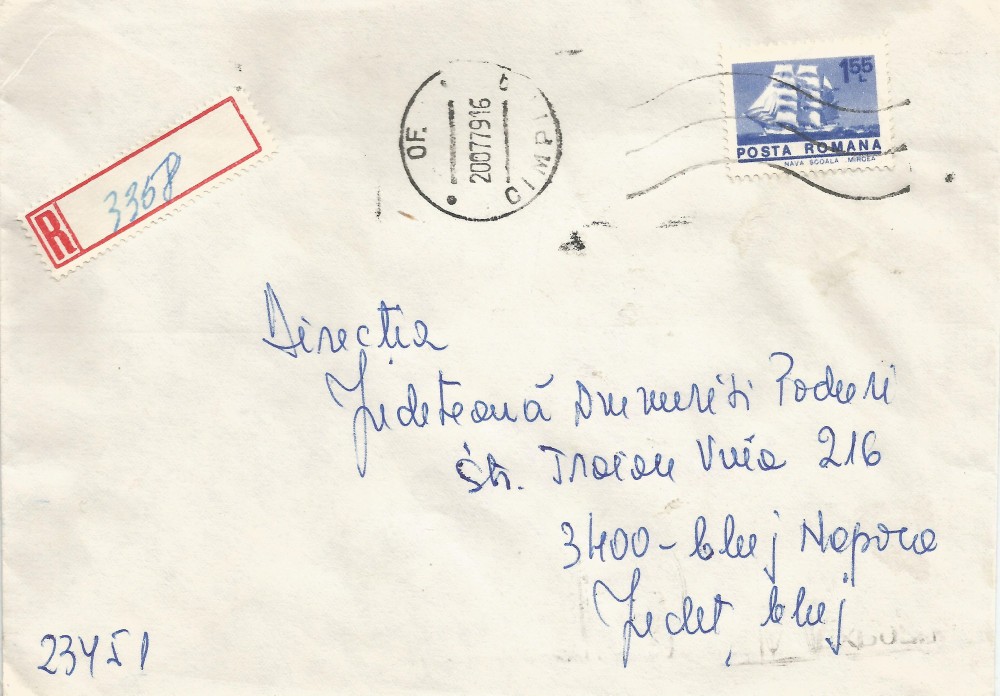 R
3358
OF.
20077916
CIMPI
155
L
POSTA ROMANA
NAVA SCOALA MIRCEA
Direcția
Județeană Drumuri și Poduri
Str. Traian Vuia 216
3400 - Cluj Napoca
Județ, Cluj
23451